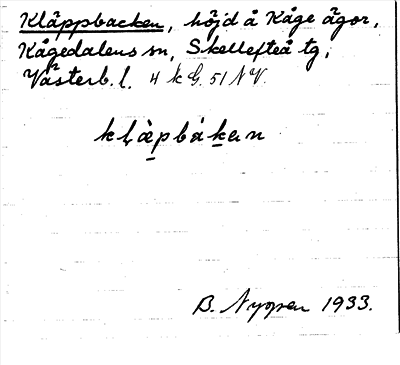 Kläppbacken, höjd å Kåge ägor,
Kågedalens sn, Skellefteå tg,
Västerb. l. 4 k G. 51 NV.
kḷæ̀pbákan
B. Nyopen 1933.